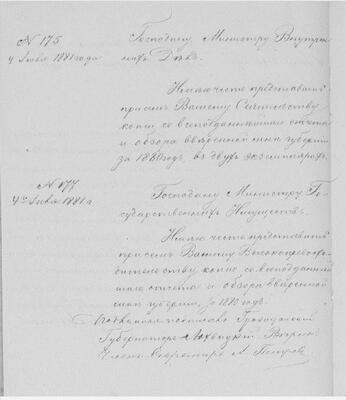 N 175
4 Июня 1881 года
Господину Министру Внутрен-
нихъ Дѣлъ.
Имѣю честь представить
при семъ Вашему Сіятельству
копіи со всеподданнѣйшаго отчета
и обзора ввѣренной мнѣ губерніи
за 1880 годъ, въ двухъ экземплярахъ.
N 177
4го Июня 1881 г.
Господину Министру Го-
сударственныхъ Имуществъ.
Имѣю честь представить
при семъ Вашему Высокопревосхо-
дительству копію со всеподданнѣй-
шаго отчета и обзора ввѣренной
мнѣ губерніи, за 1880 годъ.
подписалъ Гражданскій
Губернаторъ
Секретарь А.